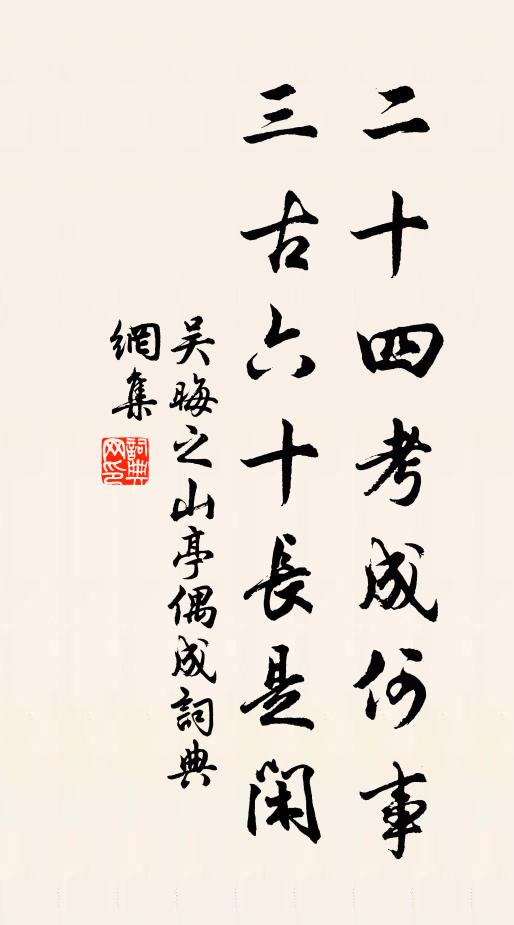 二十四考成何事
三古六十長是閑
吴晦之山亭偶成詞典
網集
詞典
网印